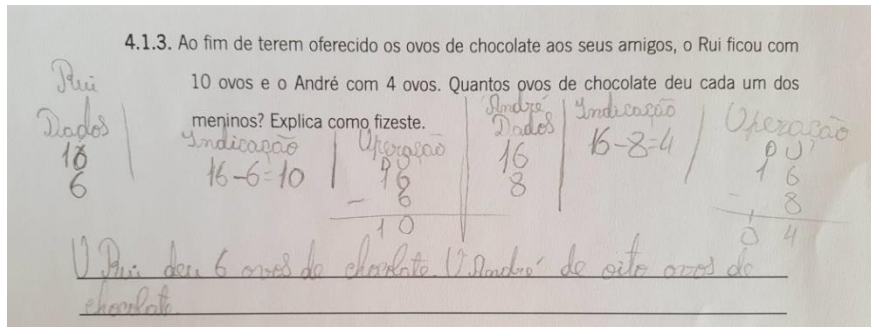 4.1.3. Ao fim de terem oferecido os ovos de chocolate aos seus amigos, o Rui ficou com
10 ovos e o André com 4 ovos. Quantos ovos de chocolate deu cada um dos
meninos? Explica como fizeste.
Rui
Dados
16
6
Indicação
16-6=10
Operação
D U
1 6
- 6
1 0
André
Dados
16
8
Indicação
16-8=4
Operação
D U
1 6
- 8
0 4
O Rui deu 6 ovos de chocolate. O André de oito ovos de
chocolate.